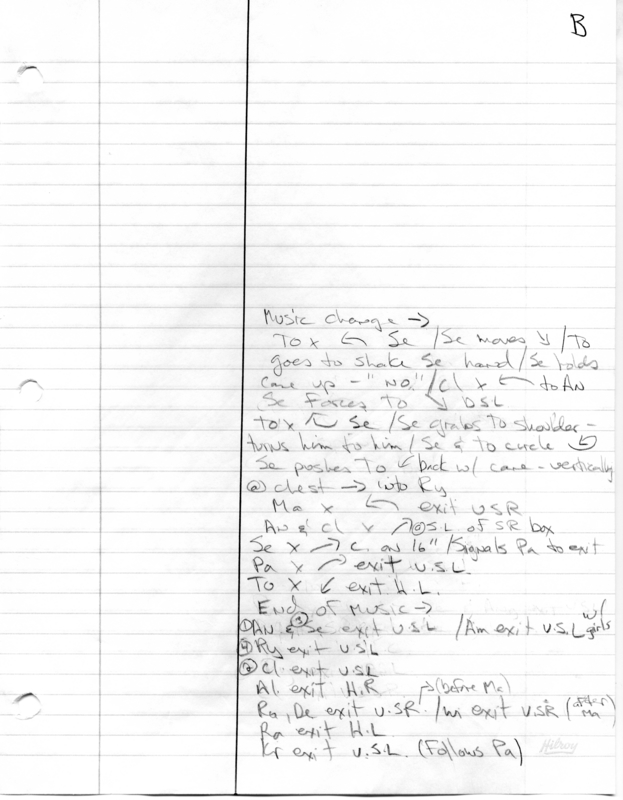 B
Music change →
To x ← Se / Se moves ↘ / To
goes to shake Se hand / Se holds
cane up - "NO." / Cl x ← to AN
Se Forces To ↘ DSL
To x ↖ Se / Se grabs To shoulder -
turns him to him / Se & To circle
Se pushes To ↙ back w/ cane - vertically
@ chest → into Ry
Ma x ← exit USR
An & Cl x ↗ @ S.L of SR box
Se x → C. on 16" / Signals Pa to exit
Pa x ↗ exit U.S.L.
To x ↙ exit H.L.
End of Music →
① AN & ③ Se exit U.S.L / Am exit U.S.L w/ girls
④ Ry exit USL
② Cl exit USL
Al. exit H.R → (before Ma)
Ro, De exit U.SR. / Wi exit U.SR (after Ma)
Ra exit H.L
Kr exit U.S.L. (Follows Pa)
Hilroy